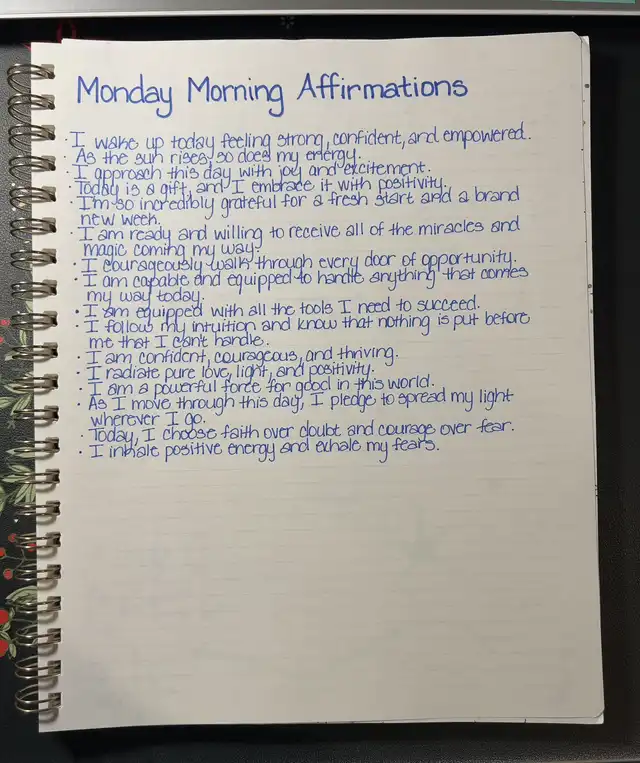 Monday Morning Affirmations
· I wake up today feeling strong, confident, and empowered.
· As the sun rises, so does my energy.
· I approach this day with joy and excitement.
· Today is a gift, and I embrace it with positivity.
· I'm so incredibly grateful for a fresh start and a brand
new week.
· I am ready and willing to receive all of the miracles and
magic coming my way.
· I courageously walk through every door of opportunity.
· I am capable and equipped to handle anything that comes
my way today.
· I am equipped with all the tools I need to succeed.
· I follow my intuition and know that nothing is put before
me that I can't handle.
· I am confident, courageous, and thriving.
· I radiate pure love, light, and positivity.
· I am a powerful force for good in this world.
· As I move through this day, I pledge to spread my light
wherever I go.
· Today, I choose faith over doubt and courage over fear.
· I inhale positive energy and exhale my fears.